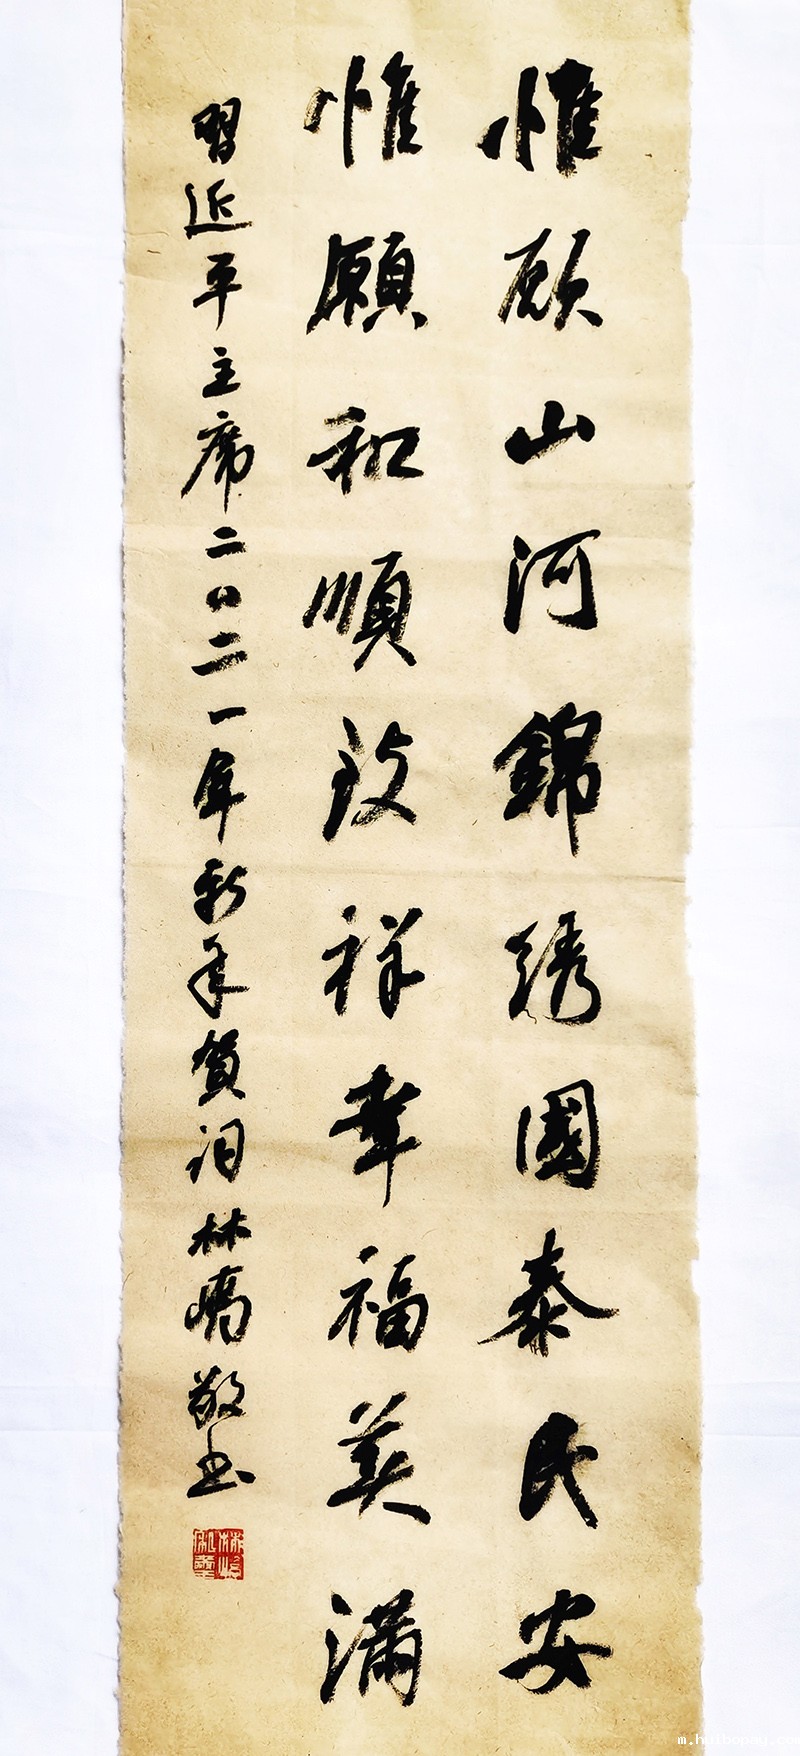 惟願山河錦绣國泰民安
惟願和順致祥幸福美满
習近平主席二〇二一年新年賀词林嶠敬书